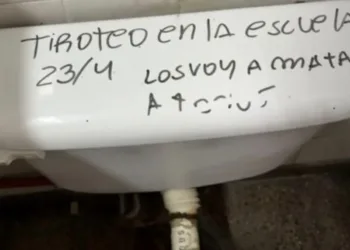 TIROTEO EN LA ESCUELA
23/4 LOS VOY A MATA
A